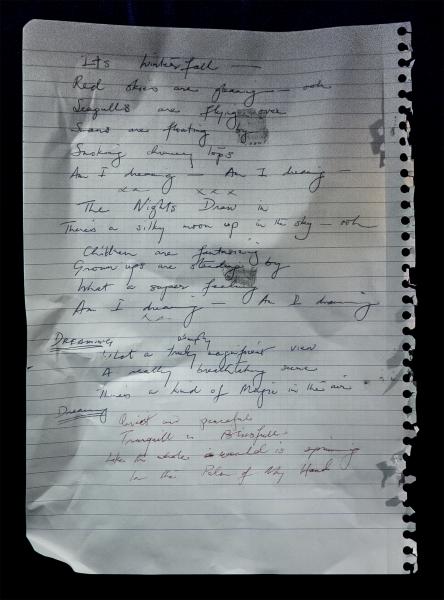 Its winter-fall —
Red skies are gleaming — ooh
Seagulls are flying over
Swans are floating by
Smoking chimney tops
Am I dreaming — Am I dreaming —
x x x x x
The Nights Draw in
There's a silky moon up in the sky — ooh
Children are fantasising
Grown ups are standing by
What a super feeling
Am I dreaming — Am I dreaming
DREAMING
simply
What a truly magnificent view
A really breathtaking scene
There's a kind of Magic in the air
Dreaming
Quiet and peaceful
Tranquil n Blissfull
Like the whole world is spinning
In the Palm of My Hand